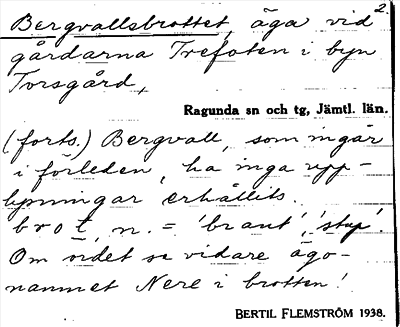 2.
Bergvallsbrottet, äga vid
gårdarna Trefoten i byn
Torsgård,
Ragunda sn och tg, Jämtl. län.
(forts.) Bergvall, som ingår
i förleden, ha inga upp-
lysningar erhållits.
brot, n. = 'brant', 'stup'.
Om ordet se vidare ägo-
namnet Nere i brotten!
BERTIL FLEMSTRÖM 1938.